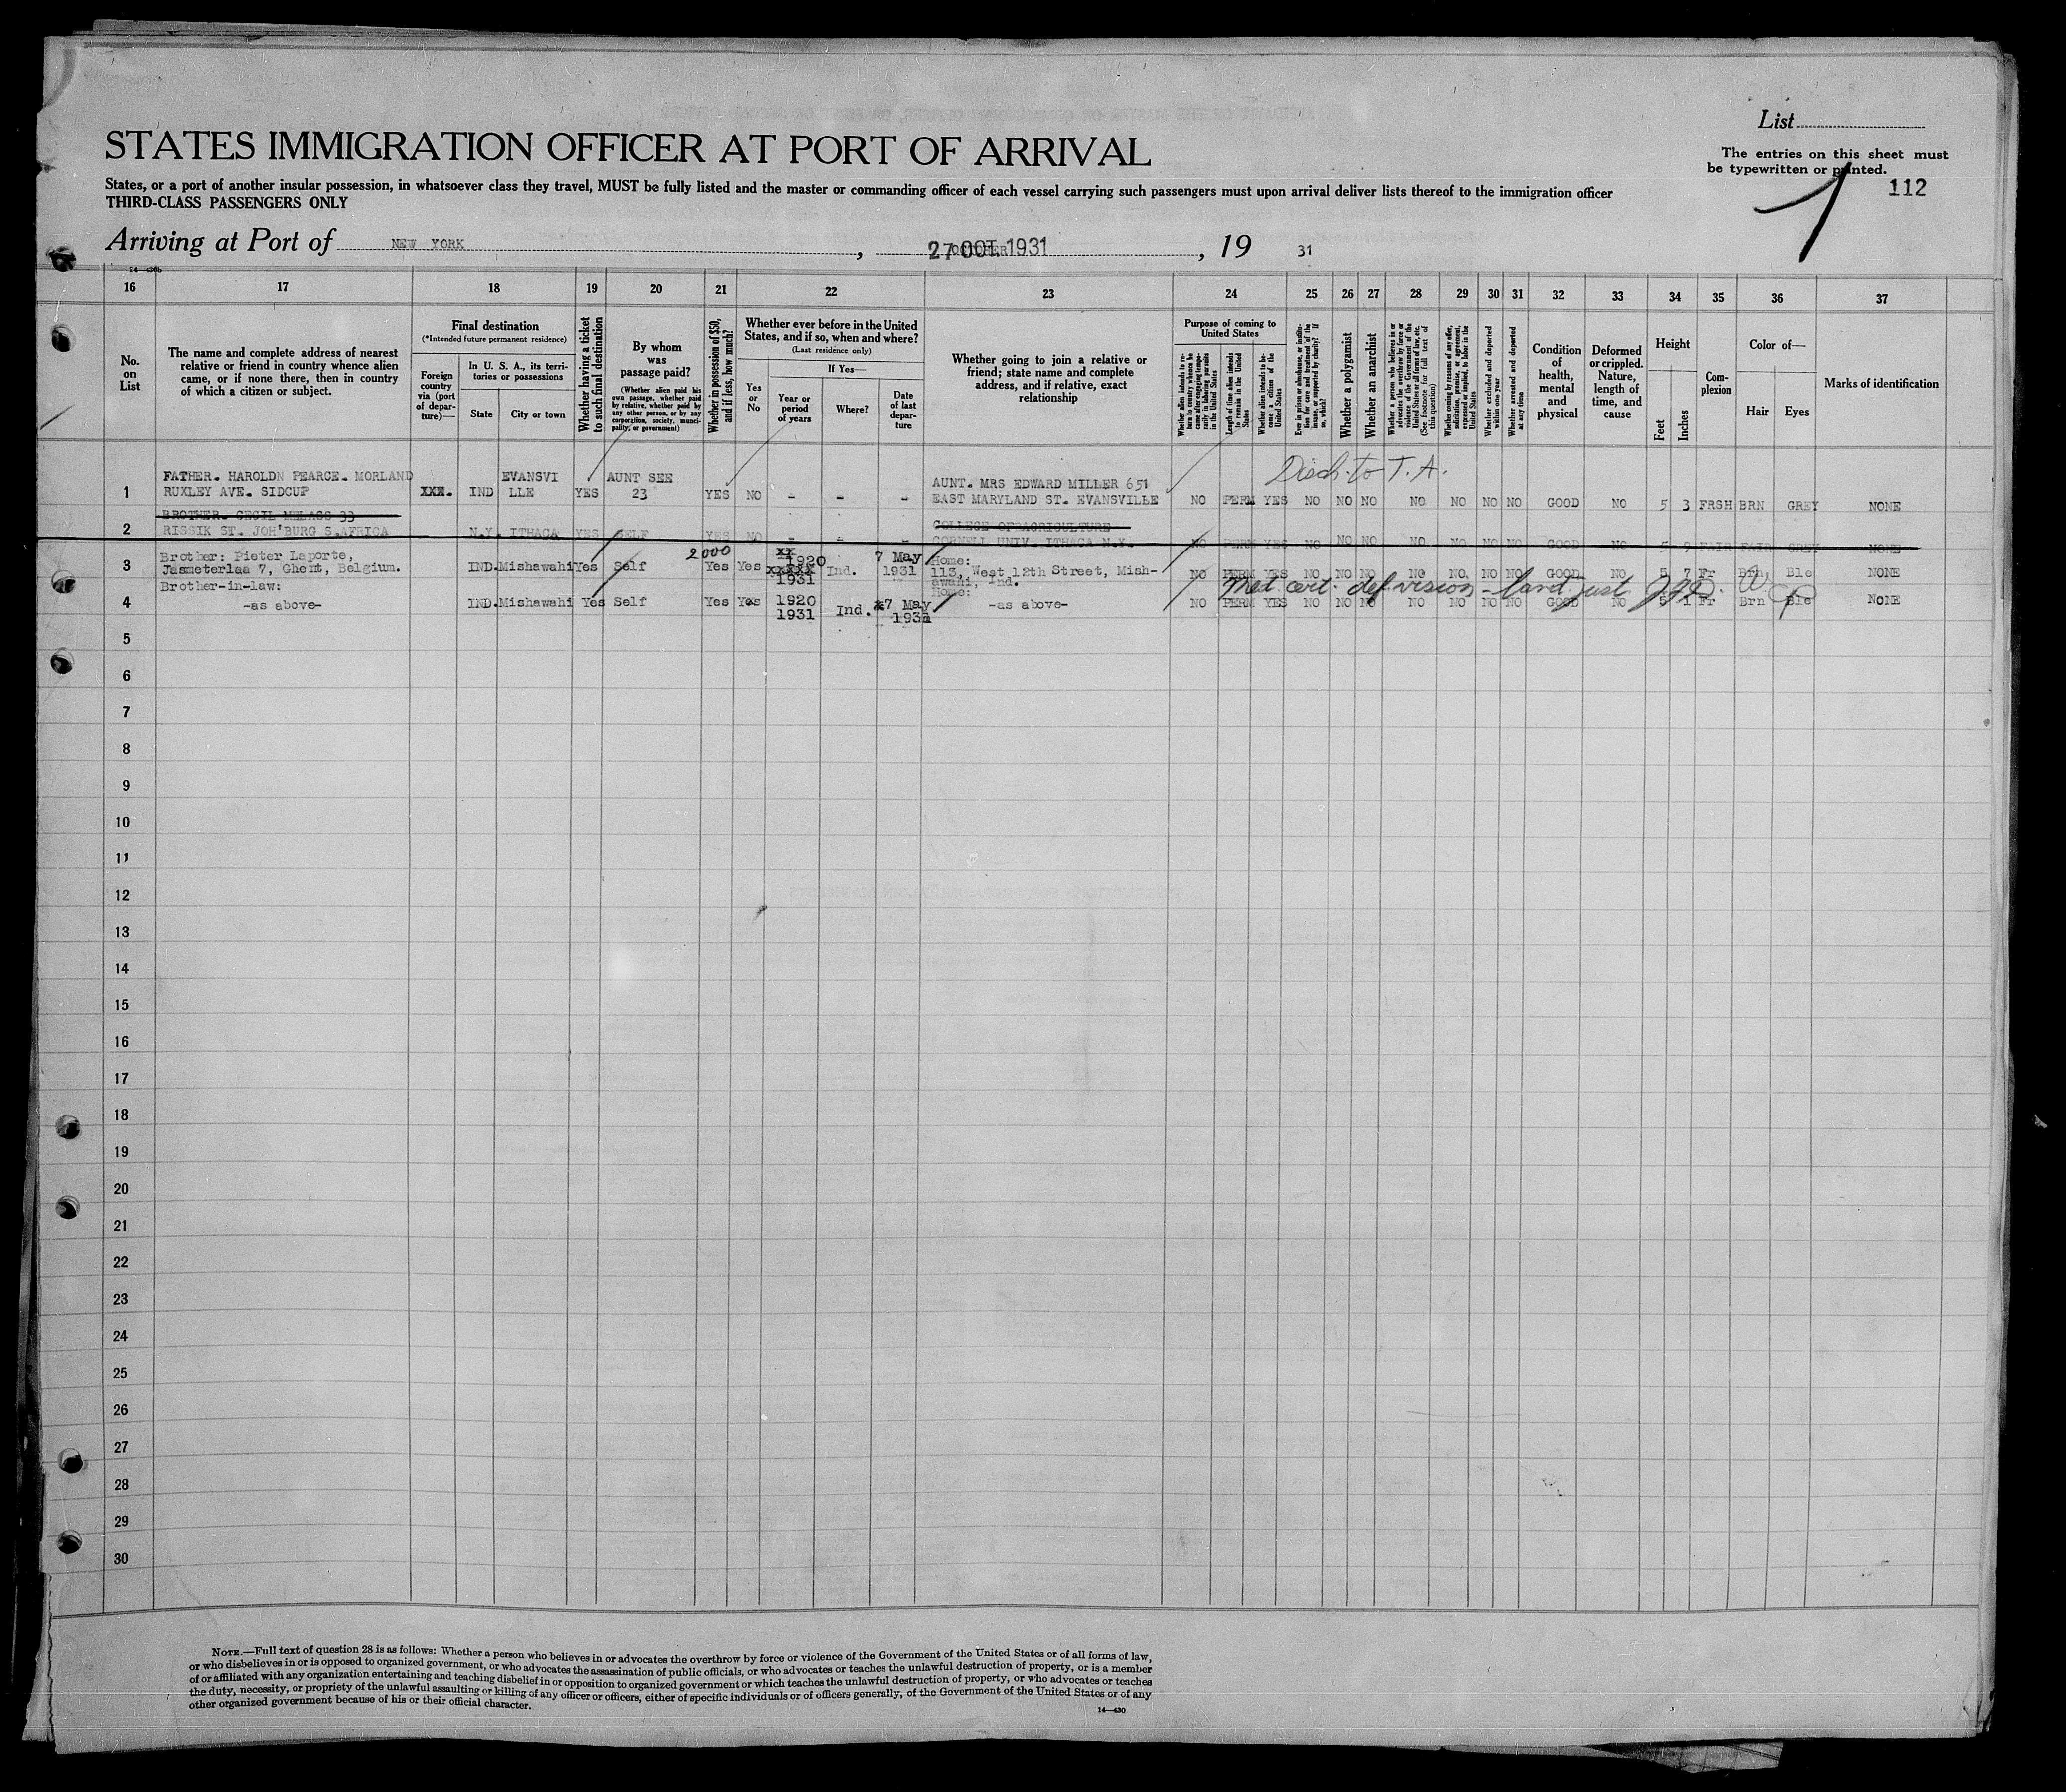 List
STATES IMMIGRATION OFFICER AT PORT OF ARRIVAL
The entries on this sheet must
be typewritten or printed.
112
1
States, or a port of another insular possession, in whatsoever class they travel, MUST be fully listed and the master or commanding officer of each vessel carrying such passengers must upon arrival deliver lists thereof to the immigration officer
THIRD-CLASS PASSENGERS ONLY
Arriving at Port of NEW YORK, 27 OCT. 1931, 19 31
14—430b
16 17 18 19 20 21 22 23 24 25 26 27 28 29 30 31 32 33 34 35 36 37
No. on List
The name and complete address of nearest
relative or friend in country whence alien
came, or if none there, then in country
of which a citizen or subject.
Final destination
(*Intended future permanent residence)
Foreign country via (port of departure)—
In U. S. A., its territories or possessions
State
City or town
Whether having a ticket to such final destination
By whom was passage paid?
(Whether alien paid his own passage, whether paid by relative, whether paid by any other person, or by any corporation, society, municipality, or government)
Whether in possession of $50, and if less, how much?
Whether ever before in the United
States, and if so, when and where?
(Last residence only)
Yes or No
If Yes—
Year or period of years
Where?
Date of last departure
Whether going to join a relative or
friend; state name and complete
address, and if relative, exact
relationship
Purpose of coming to United States
Whether alien intends to return to country whence he came after engaging temporarily in laboring pursuits in the United States
Length of time alien intends to remain in the United States
Whether alien intends to become a citizen of the United States
Ever in prison or almshouse, or institution for care and treatment of the insane, or supported by charity? If so, which?
Whether a polygamist
Whether an anarchist
Whether a person who believes in or advocates the overthrow by force or violence of the Government of the United States or all forms of law, etc. (See footnote for full text of this question)
Whether coming by reasons of any offer, solicitation, promise, or agreement, expressed or implied, to labor in the United States
Whether excluded and deported within one year
Whether arrested and deported at any time
Condition of health, mental and physical
Deformed or crippled. Nature, length of time, and cause
Height
Feet
Inches
Complexion
Color of—
Hair
Eyes
Marks of identification
Disch. to T. A.
FATHER. HAROLDN PEARCE. MORLAND EVANSVI AUNT SEE AUNT. MRS EDWARD MILLER 651
1 RUXLEY AVE. SIDCUP XXX. IND LLE YES 23 YES NO - - - EAST MARYLAND ST. EVANSVILLE NO PERM YES NO NO NO NO NO NO NO GOOD NO 5 3 FRSH BRN GREY NONE
BROTHER. CECIL MELASS 33 COLLEGE OF AGRICULTURE
2 RISSIK ST. JOH'BURG S.AFRICA N.Y. ITHACA YES SELF YES NO - - - CORNELL UNIV. ITHACA N.Y. NO PERM YES NO NO NO NO NO NO NO GOOD NO 5 9 FAIR FAIR GREY NONE
Brother: Pieter Laporte, 2000 xx 1920 7 May Home:
3 Jasmeterlaa 7, Ghent, Belgium. IND. Mishawahi Yes Self Yes Yes xxxxx 1931 Ind. 1931 113, West 12th Street, Mishawahi, Ind. NO PERM YES NO NO NO NO NO NO NO GOOD NO 5 7 Fr Brn Ble NONE
Med. cert. def vision - land just
Brother-in-law: Home:
4 -as above- IND. Mishawahi Yes Self Yes Yes 1920 1931 Ind. 7 May 193 -as above- NO PERM YES NO NO NO NO NO NO NO GOOD NO 5 1 Fr Brn Ble NONE
5
6
7
8
9
10
11
12
13
14
15
16
17
18
19
20
21
22
23
24
25
26
27
28
29
30
NOTE.—Full text of question 28 is as follows: Whether a person who believes in or advocates the overthrow by force or violence of the Government of the United States or of all forms of law,
or who disbelieves in or is opposed to organized government, or who advocates the assassination of public officials, or who advocates or teaches the unlawful destruction of property, or is a member
of or affiliated with any organization entertaining and teaching disbelief in or opposition to organized government or which teaches the unlawful destruction of property, or who advocates or teaches
the duty, necessity, or propriety of the unlawful assaulting or killing of any officer or officers, either of specific individuals or of officers generally, of the Government of the United States or of any
other organized government because of his or their official character.
14—430